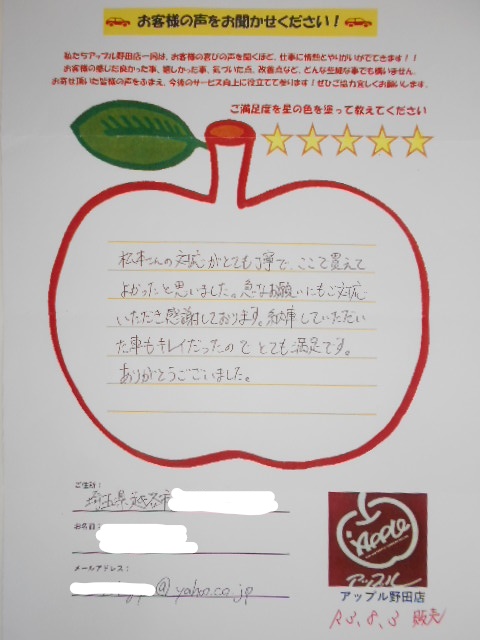 お客様の声をお聞かせください!
私たちアップル野田店一同は、お客様の喜びの声を聞くほど、仕事に情熱とやりがいがでてきます!!
お客様の感じた良かった事、嬉しかった事、気づいた点、改善点など、どんな些細な事でも構いません。
お寄せ頂いた皆様の声をふまえ、今後のサービス向上に役立てて参ります!ぜひご協力宜しくお願いします。
ご満足度を星の色を塗って教えてください
松本さんの対応がとても丁寧で、ここで買えて
よかったと思いました。急なお願いにもご対応
いただき感謝しております。納車していただい
た車もキレイだったので とても満足です。
ありがとうございました。
ご住所:
埼玉県越谷市
お名前:
メールアドレス:
@yahoo.co.jp
APPLE
アップル
アップル野田店
R3.8.3 販売